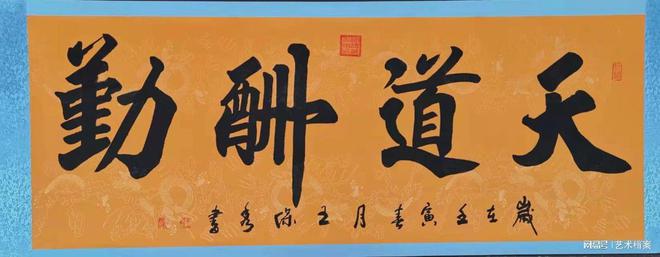 天道酬勤
歲在壬寅春月王書
搜狐号|艺术档案